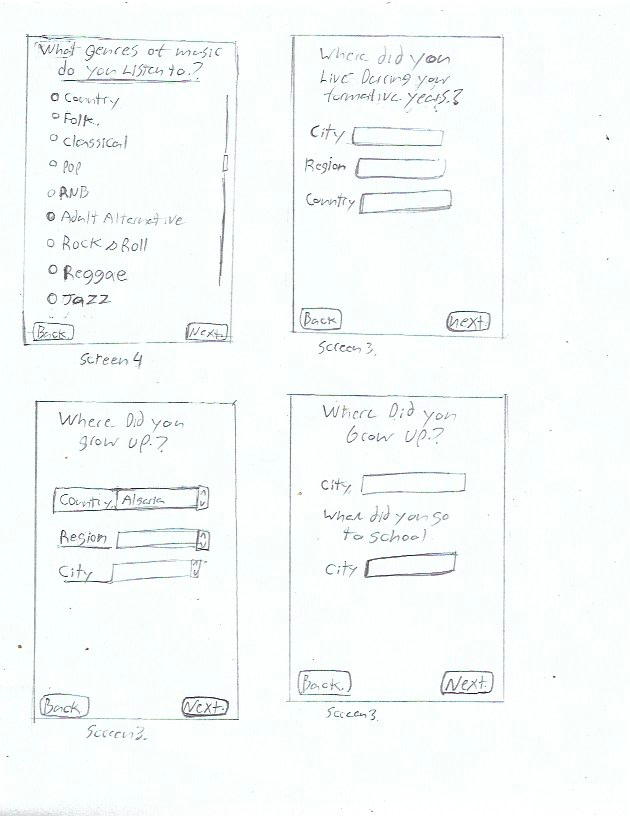 What genres of music
do you Listen to.?
Country
Folk.
Classical
POP
RNB
Adult Alternative
Rock & Roll
Reggae
Jazz
Back.
Next.
Screen 4
Where did you
Live During your
formative years.?
City
Region
Country
Back
next.
Screen 3.
Where Did you
grow up.?
Country
Algeria
Region
City
Back
Next.
Screen 3.
Where Did you
Grow up.?
City.
When did you go
to school
City
Back.
Next.
Screen 3.